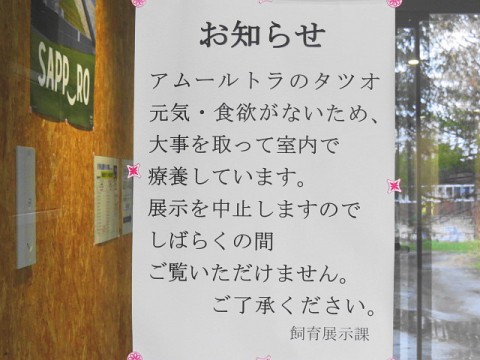 SAPP_RO
お知らせ
アムールトラのタツオ
元気・食欲がないため、
大事を取って室内で
療養しています。
展示を中止しますので
しばらくの間
ご覧いただけません。
ご了承ください。
飼育展示課